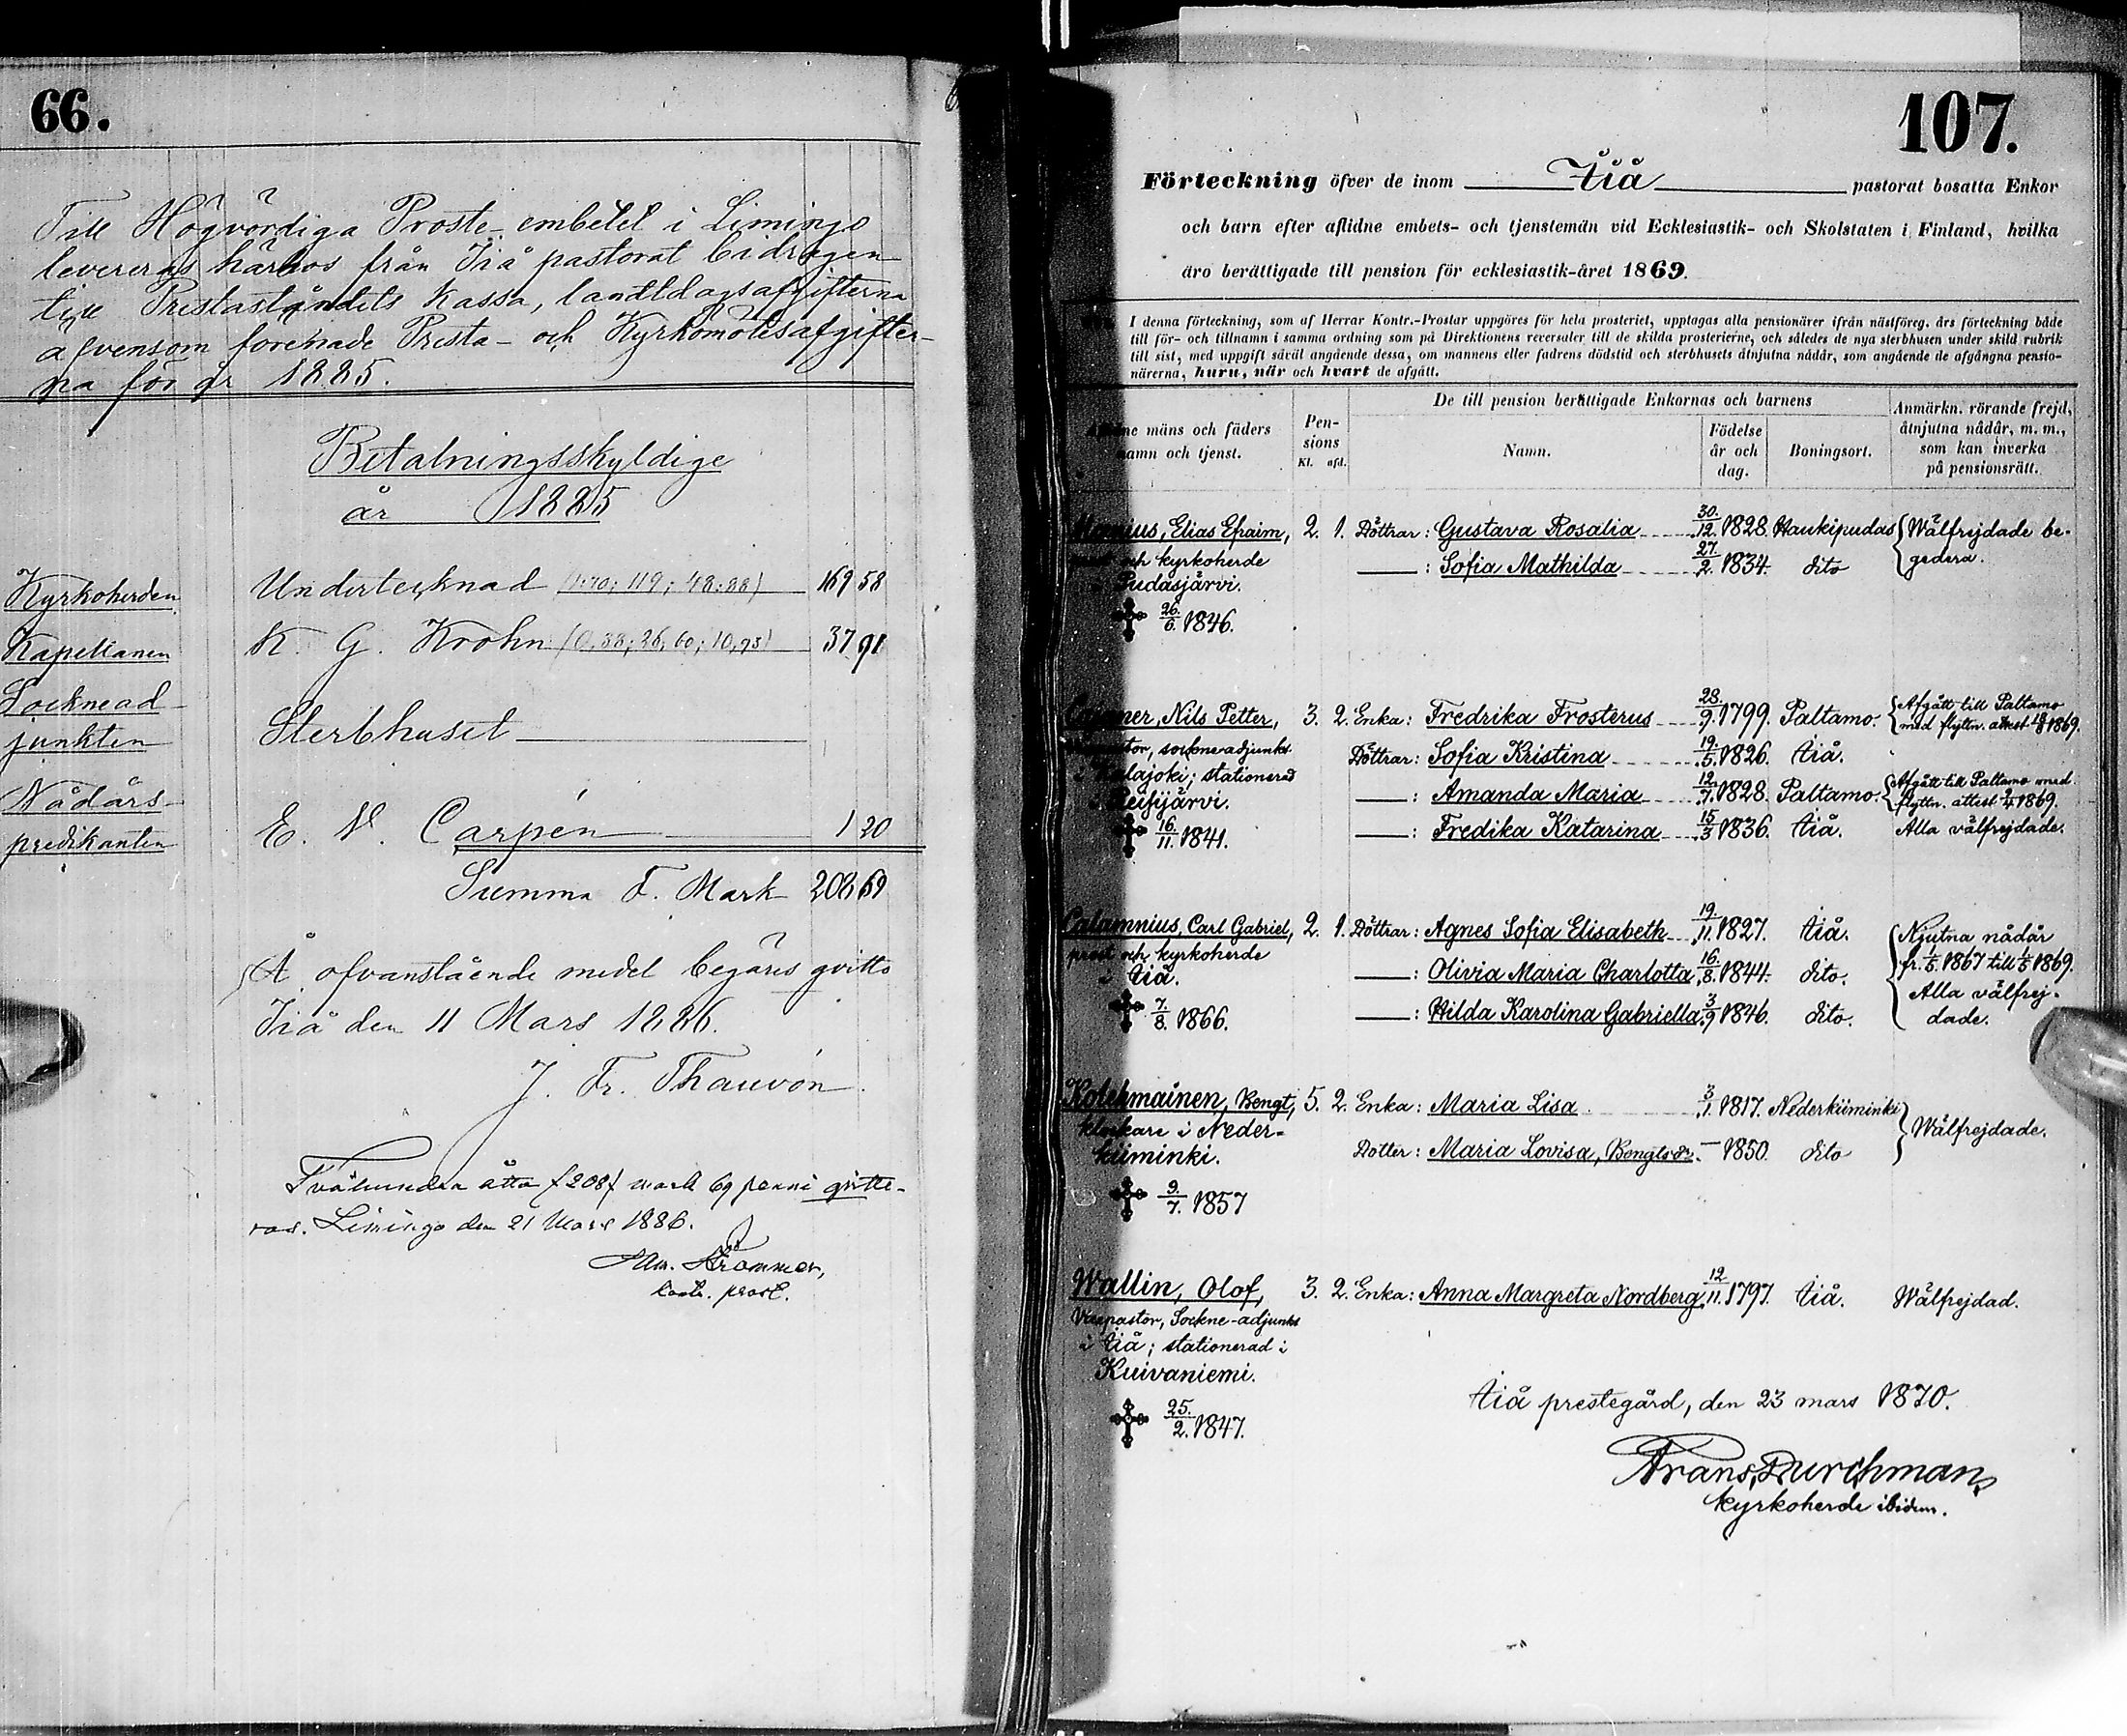 66.
Till Högvördiga Proste-embetet i Limingo
levereras härhos från Iiå pastorat bidragen
till Prestaståndets Kassa, landtdagsafgifterna
äfvensom förenade Presta- och Kyrkomötesafgifter-
na för år 1885.
Betalningsskyldige
år 1885
Kyrkoherden Undertecknad (1:70; 119; 48:88) 169 58
Kapellanen K. G. Krohn (0,38; 26,60; 10,93) 37 91
Socknead-
junkten Sterbhuset
Nådårs-
predikanten E. W. Carpén 1 20
Summa F. Mark 208 69
Å ofvanstående medel begäres qvitto
Iiå den 11 Mars 1886.
J. Fr. Thauvón
Tvåhundra åtta (208) mark 69 penni qvitte-
ras. Limingo den 21 Mars 1886.
Strömmer,
Contr. prost.
107.
Förteckning öfver de inom Iiå pastorat bosatta Enkor
och barn efter aflidne embets- och tjenstemän vid Ecklesiastik- och Skolstaten i Finland, hvilka
äro berättigade till pension för ecklesiastik-året 1869.
I denna förteckning, som af Herrar Kontr.-Prostar uppgöres för hela prosteriet, upptagas alla pensionärer ifrån nästföreg. års förteckning både
till för- och tillnamn i samma ordning som på Direktionens reversaler till de skilda prosterierne, och således de nya sterbhusen under skild rubrik
till sist, med uppgift såväl angående dessa, om mannens eller fadrens dödstid och sterbhusets åtnjutna nådår, som angående de afgångna pensio-
närerna, huru, när och hvart de afgått.
De till pension berättigade Enkornas och barnens
Aflidne mäns och fäders
namn och tjenst.
Pen-
sions
Kl. afd.
Namn.
Födelse
år och
dag.
Boningsort.
Anmärkn. rörande frejd,
åtnjutna nådår, m. m.,
som kan inverka
på pensionsrätt.
Elias Efraim, 2. 1. Döttrar: Gustava Rosalia 30./12. 1828. Haukipudas Wälfrejdade be-
och kyrkoherde —: Sofia Mathilda 27./2. 1834. dito gedera.
i Pudasjärvi.
26./6. 1846.
Cajaner, Nils Petter, 3. 2. Enka: Fredrika Frosterus 28./9. 1799. Paltamo. Afgått till Paltamo
med flyttn. attest 1869.
sockne-adjunkt Döttrar: Sofia Kristina 19./5. 1826. Iiå.
i Kalajoki; stationerad —: Amanda Maria 12./7. 1828. Paltamo. Afgått till Paltamo med
flyttn. attest 1869.
i Reisjärvi. —: Fredika Katarina 15/3 1836. Iiå. Alla välfrejdade.
16./11. 1841.
Calamnius, Carl Gabriel, 2. 1. Döttrar: Agnes Sofia Elisabeth 19./11. 1827. Iiå. Njutna nådår
prost och kyrkoherde —: Olivia Maria Charlotta 16./8. 1844. dito. fr. 1/5. 1867 till 1/5 1869.
i Iiå. Alla välfrej-
—: Hilda Karolina Gabriella 3/9 1846. dito. dade.
7./8. 1866.
Kolehmainen, Bengt, 5. 2. Enka: Maria Lisa 3/1. 1817. Nederkiiminki
klockare i Neder- Wälfrejdade.
kiiminki. Dotter: Maria Lovisa, Bengtsdr. — 1850. dito
9./7. 1857
Wallin, Olof, 3. 2. Enka: Anna Margreta Nordberg 12/11. 1797. Iiå. Wälfrejdad.
Vicepastor, Sockne-adjunkt
i Iiå; stationerad i
Kuivaniemi.
25./2. 1847.
Iiå prestegård, den 23 mars 1870.
Frans Durchman,
kyrkoherde ibidem.